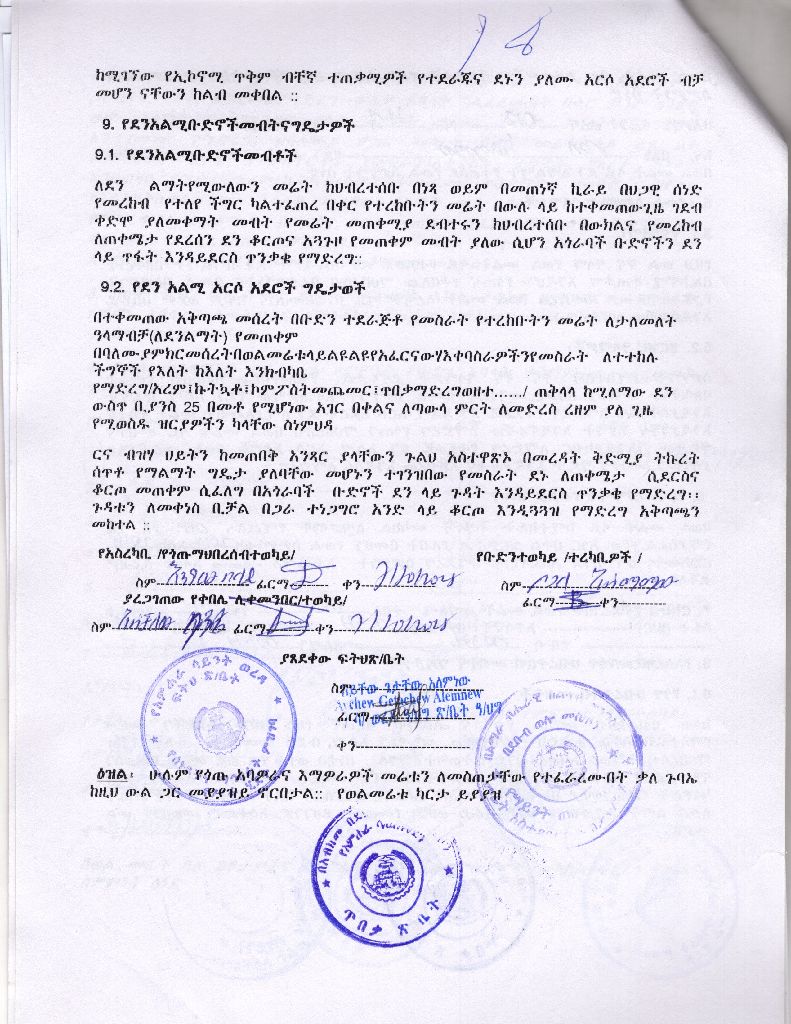 ከሚገኘው የኢኮኖሚ ጥቅም ብቸኛ ተጠቃሚዎች የተደራጁና ደኑን ያለሙ አርሶ አደሮች ብቻ
መሆን ናቸውን ከልብ መቀበል ::
9. የደንአልሚቡድኖችመብትናግዴታዎች
9.1. የደንአልሚቡድኖችመብቶች
ለደን ልማትየሚውለውን መሬት ከህብረተሰቡ በነጻ ወይም በመጠነኛ ኪራይ በህጋዊ ሰነድ
የመረከብ የተለየ ችግር ካልተፈጠረ በቀር የተረከቡትን መሬት በውሉ ላይ ከተቀመጠውጊዜ ገደብ
ቀድሞ ያለመቀማት መብት የመሬት መጠቀሚያ ደብተሩን ከህብረተሰቡ በውክልና የመረከብ
ለጠቀሜታ የደረሰን ደን ቆርጦና አጓጉዞ የመጠቀም መብት ያለው ሲሆን አጎራባች ቡድኖችን ደን
ላይ ጥፋት እንዳይደርስ ጥንቃቄ የማድረግ::
9.2. የደን አልሚ አርሶ አደሮች ግዴታወች
በተቀመጠው አቅጣጫ መሰረት በቡድን ተደራጅቶ የመስራት የተረከቡትን መሬት ለታለመለት
ዓላማብቻ(ለደንልማት) የመጠቀም
በባለሙያምክርመሰረትበወልመሬቱላይልዩልዩየአፈርናውሃእቀባስራዎችንየመስራት ለተተከሉ
ችግኞች የእለት ከእለት እንክብካቤ
የማድረግ/አረም፤ኩትኳቶ፤ኮምፖስትመጨመር፤ጥበቃማድረግወዘተ....../ ጠቅላላ ከሚለማው ደን
ውስጥ ቢያንስ 25 በመቶ የሚሆነው አገር በቀልና ለጣውላ ምርት ለመድረስ ረዘም ያለ ጊዜ
የሚወስዱ ዝርያዎችን ካላቸው ስነምህዳ
ርና ብዝሃ ህይትን ከመጠበቅ አንጻር ያላቸውን ጉልህ አስተዋጽኦ በመረዳት ቅድሚያ ትኩረት
ሰጥቶ የማልማት ግዴታ ያለባቸው መሆኑን ተገንዝበው የመስራት ደኑ ለጠቀሜታ ሲደርስና
ቆርጦ መጠቀም ሲፈለግ በአጎራባች ቡድኖች ደን ላይ ጉዳት እንዳይደርስ ጥንቃቄ የማድረግ፡፡
ጉዳቱን ለመቀነስ ቢቻል በጋራ ተነጋግሮ አንድ ላይ ቆርጦ እንዲጓጓዝ የማድረግ አቅጣጫን
መከተል ::
የአስረካቢ /የጎጡማህበረሰብተወካይ/ የቡድንተወካይ /ተረካቢዎች /
ስም ፊርማ ቀን ስም
ያረጋገጠው የቀበሌ ሊቀመንበር/ተወካይ/ ፊርማ ቀን
ስም ፊርማ ቀን
ያጸደቀው ፍትህጽ/ቤት
ስም ጌታቸው አለምነው
Getachew Alemnew
ፊርማ
ቀን
ዕዝል፡ ሁሉም የጎጡ አባዎራና እማዎራዎች መሬቱን ለመስጠታቸው የተፈራረሙበት ቃለ ጉባኤ
ከዚህ ውል ጋር መያያዝይ ኖርበታል:: የወልመሬቱ ካርታ ይያያዝ
ጥበቃ ጽ ቤት